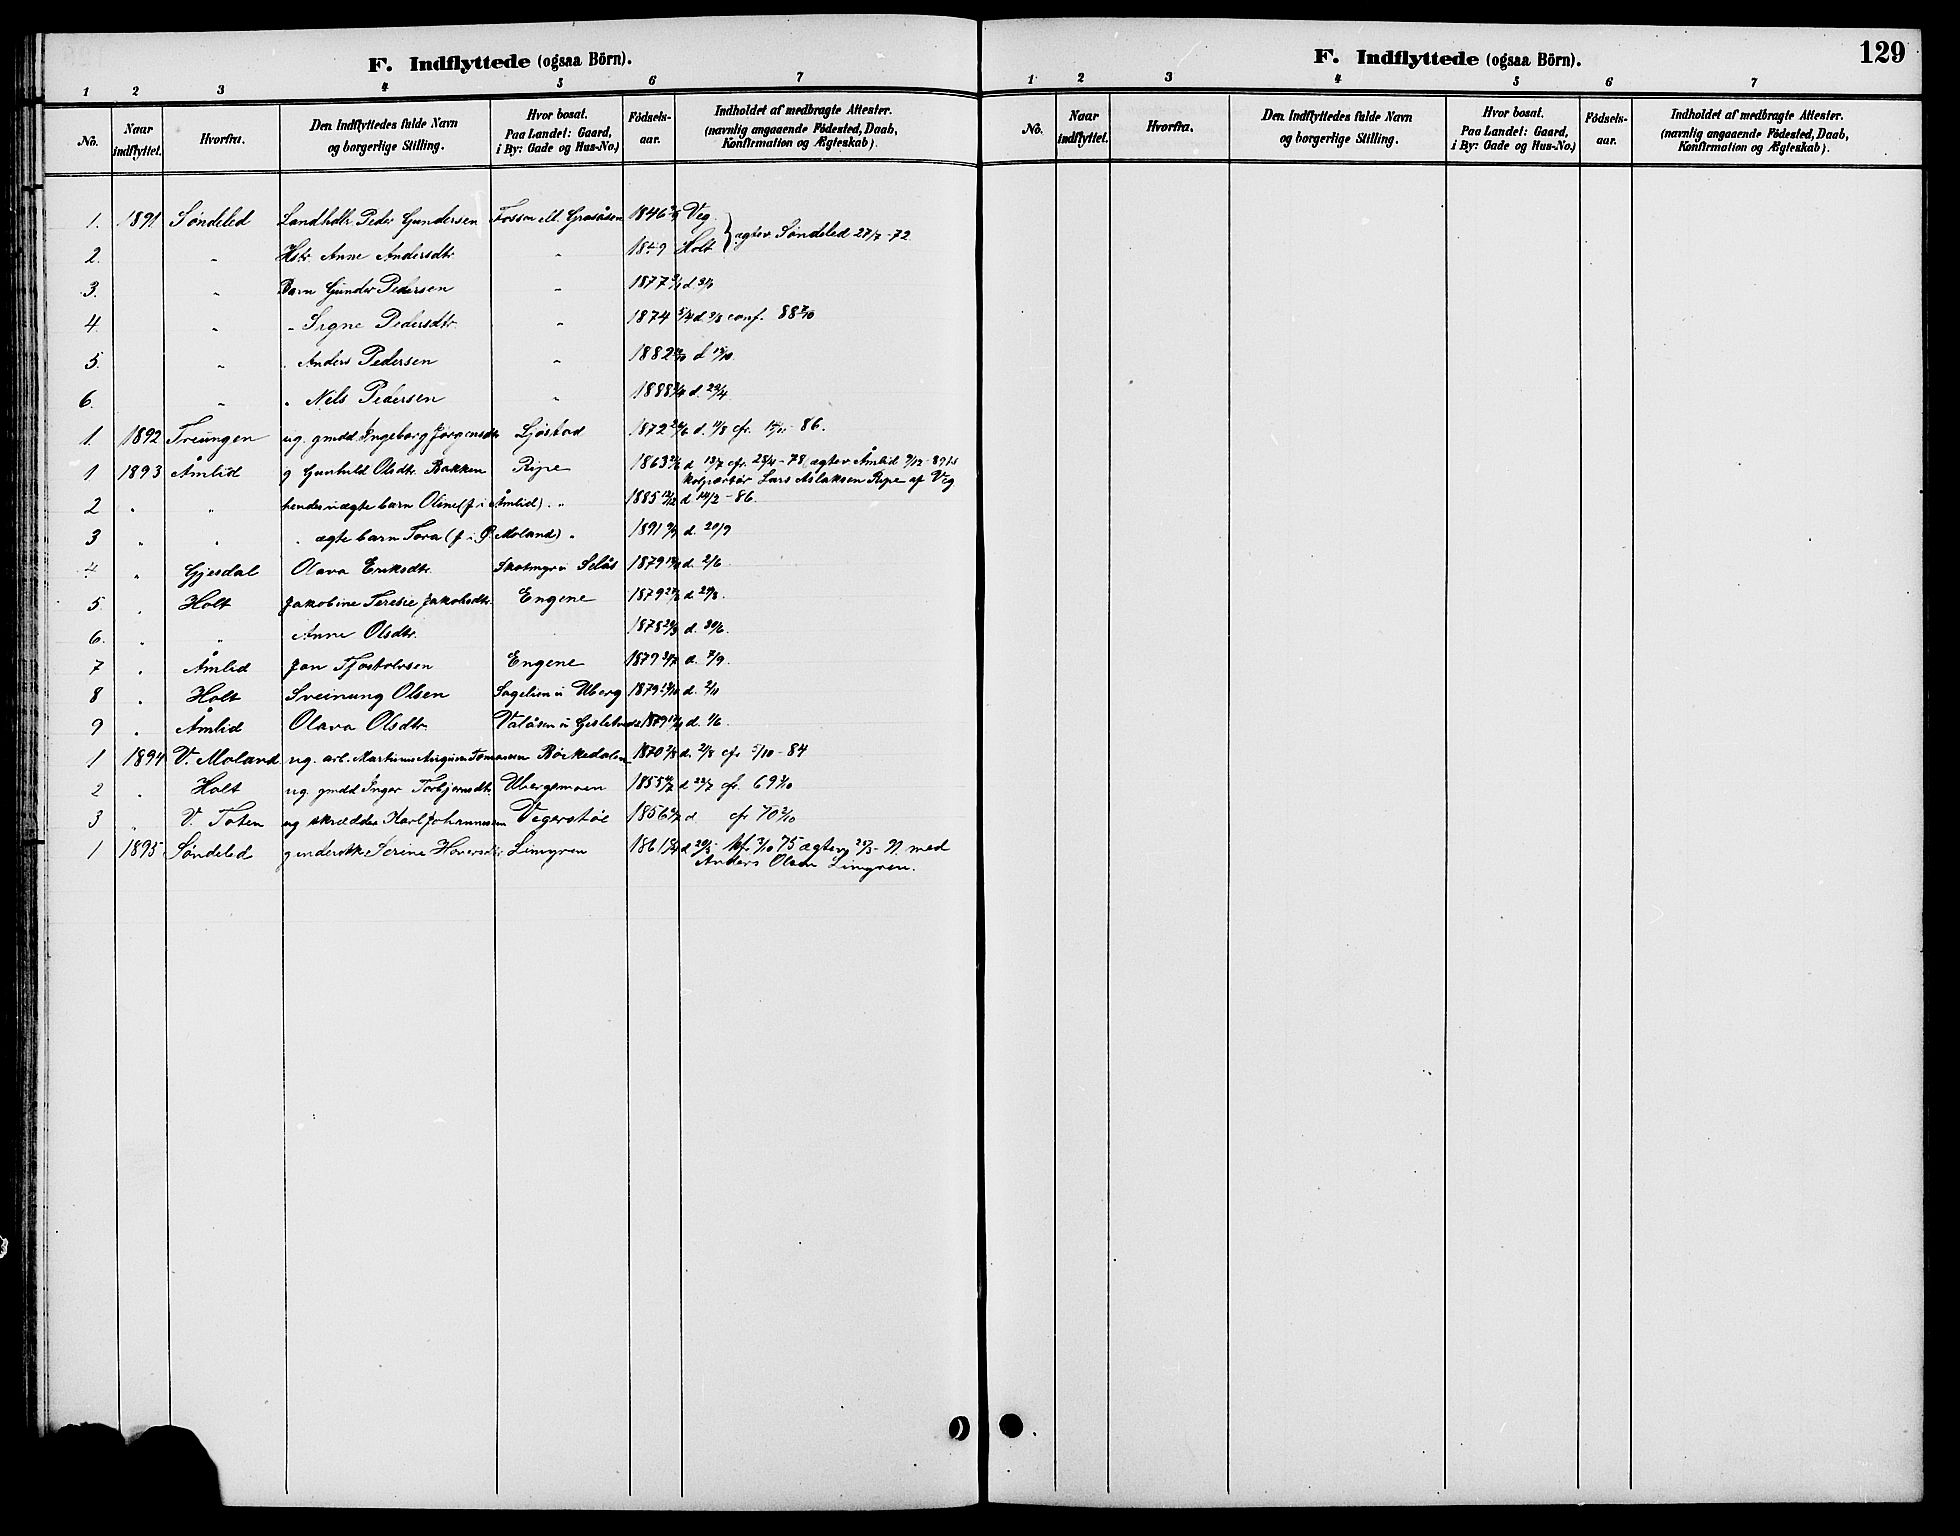 F. Indflyttede (ogsaa Börn).
1 2 3 4 5 6 7
No. Naar indflyttet. Hvorfra. Den Indflyttedes fulde Navn og borgerlige Stilling. Hvor bosat. Paa Landet: Gaard, i By: Gade og Hus-No.) Fødsels-aar. Indholdet af medbragte Attester. (navnlig angaaende Fødested, Daab, Konfirmation og Ægteskab).
1. 1891 Søndeled Landhdlr. Peder Gundersen Fossen ell. Graasåsen 1846 Veg.
ægtev Søndeled 27/7-72
2. " Hstr. Anne Andersdtr. " 1849 Holt
3. " Barn Gunder Pedersen " 1877
4. " " Signe Pedersdtr. " 1874 5/4 d. 3/8 conf. 88
5. " " Anders Pedersen " 1882 d
6. " " Nels Pedersen " 1888 d. 29/4
1 1892 Treungen ug. gmdd Ingeborg Jørgensdtr Ljøstad 1872 d. cfr. -86.
1 1893 Åmlid g Gunhild Olsdtr. Bakken Ripe 1863 d 13/7 cfr. 28/4-78 ægtev Åmlid 9/12-89
kolportør Lars Aslaksen Ripe af Veg
2 " " hendes uægte barn Oline (f. i Åmlid) " 1885 d 14/2-86.
3 " " " ægte barn Tora (f. i Moland) " 1891 d. 20/9
4 " Gjesdal Olava Eriksdtr. Skotmyr u Selås 1879 d. 2/6
5 " Holt Jakobine Teresie Jakobsdtr. Engene 1879 d. 29/8
6. " " Anne Olsdtr. 1878 d. 30/6.
7 " Åmlid Jon Tjostolvsen Engene 1879 d. 7/9.
8 " Holt Sveinung Olsen Sagelien u Uberg 1879 d. 2/11
9 " Åmlid Olava Olsdtr. Valåsen u 1879 d. 1/6.
1 1894 V. Moland ug. arb. Martinus Tomassen Bøikedalen 1870 d. 21/8 cfr 5/10-84
2 " Holt ug. gmdd Inger Torbjørnsdtr. Ubergsmoen 1855 d 22/7 cfr. 69
3 " V. Toten ug skrædder Karl Johannessen Vegerstøl 1856 d cfr 70
1 1895 Søndeled Serine Limyren 1861 d 20/5 kf. 75 ægtev med
Anders Olsen Limyren.
F. Indflyttede (ogsaa Börn).
129
1 2 3 4 5 6 7
No. Naar indflyttet. Hvorfra. Den Indflyttedes fulde Navn og borgerlige Stilling. Hvor bosat. Paa Landet: Gaard, i By: Gade og Hus-No.) Fødsels-aar. Indholdet af medbragte Attester. (navnlig angaaende Fødested, Daab, Konfirmation og Ægteskab).